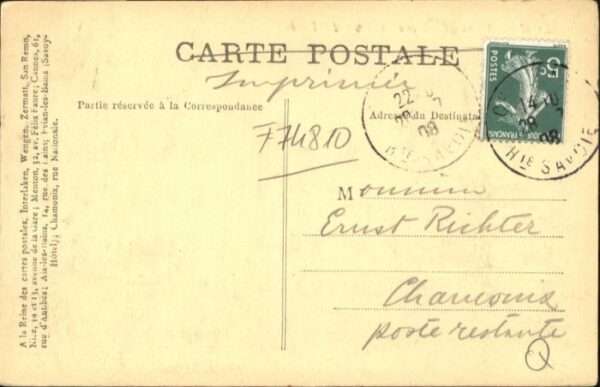 CARTE POSTALE
Imprimée
Partie réservée à la Correspondance
Adresse du Destinata
F74810
Monsieur
Ernst Richter
Chamonix
poste restante
Q
5c
POSTES
FRANÇAIS
22
08
Hte SAVOIE
14 10
29
08
Hte SAVOIE
A la Reine des cartes postales, Interlaken, Wengen, Zermatt, San Remo,
Nice, avenue de la Gare; Menton, 32, av. Félix Faure; Cannes, 61,
rue d'Antibes; Aix-les-Bains, rue des Bains; Evian-les-Bains (Savoy-
Hôtel); Chamonix, rue Nationale.